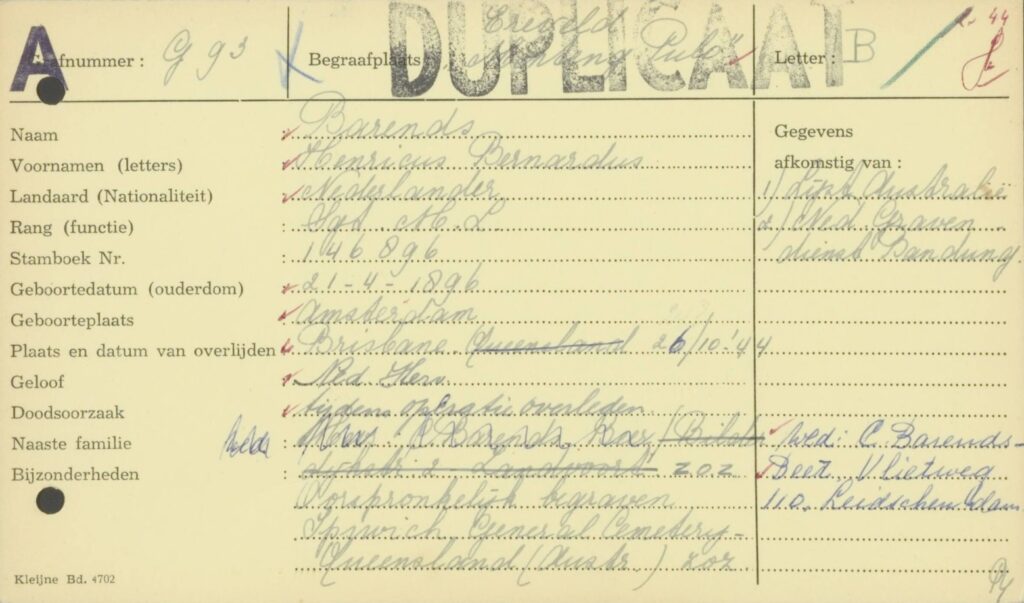 A
DUPLICAAT
Grafnummer : G 93
Begraafplaats : Ereveld Menteng Pulo
Letter : B
44
Naam : Barends
Voornamen (letters) : Henricus Bernardus
Landaard (Nationaliteit) : Nederlander
Rang (functie) : Sgt. M.L
Stamboek Nr. : 146896
Geboortedatum (ouderdom) : 21-4-1896
Geboorteplaats : Amsterdam
Plaats en datum van overlijden : Brisbane Queensland 26/10-'44
Geloof : Ned. Herv.
Doodsoorzaak : tijdens operatie overleden
Naaste familie : Wede Mev. C. Barends
Bijzonderheden : 2 Zandvoort zoz
Oorspronkelijk begraven
Ipswich General Cemetery-
Queensland (Austr.) zoz
Gegevens
afkomstig van :
1) Lijst Australië
2) Ned. Graven-
dienst Bandung.
wed: C. Barends-
Vlietweg
110. Leidschendam
Kleijne Bd. 4702